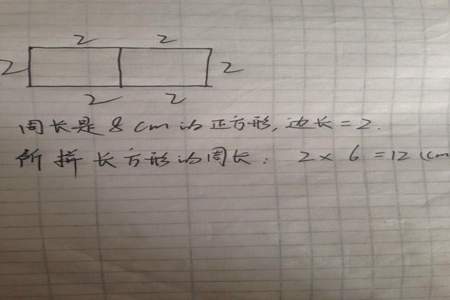 2 2
2 2
2 2
周长是8cm的正方形,边长=2.
所拼长方形的周长: 2×6=12(cm